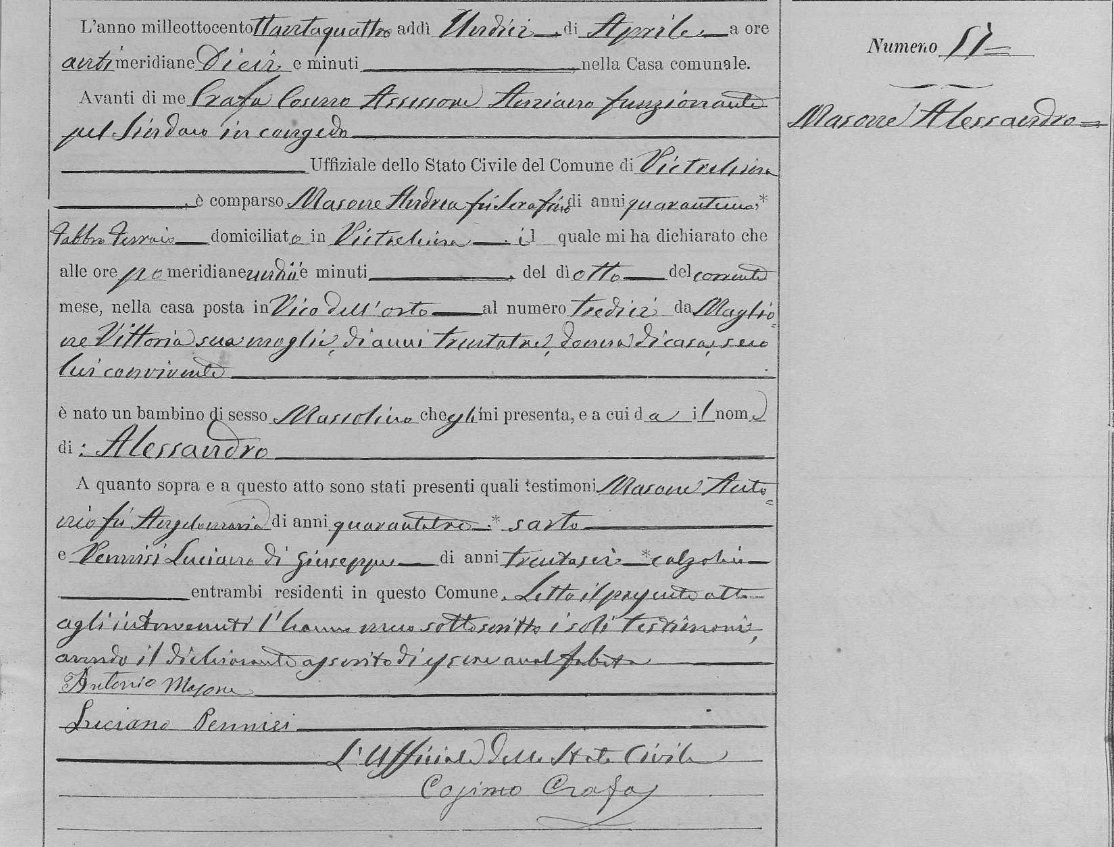 L'anno milleottocento ottantaquattro addì Undici di Aprile a ore
anti meridiane Dieci e minuti nella Casa comunale.
Avanti di me Crafa Cosimo Assessore Anziano funzionante
pel Sindaco in congedo
Uffiziale dello Stato Civile del Comune di Pietrelcina
è comparso Masone Andrea fu Serafino di anni quarantuno*
Fabbro Ferraio domiciliato in Pietrelcina il quale mi ha dichiarato che
alle ore po meridiane undici e minuti del dì otto del corrente
mese, nella casa posta in Vico dell'orto al numero tredici da Maglio=
ne Vittoria sua moglie, di anni trentatre, donna di casa, seco
lui convivente
è nato un bambino di sesso Mascolino che egli mi presenta, e a cui da il nome
di: Alessandro
A quanto sopra e a questo atto sono stati presenti quali testimoni Masone Anto=
nio fu Angelomaria di anni quarantatre * sarto
e Pennisi Luciano di Giuseppe di anni trentasei * calzolaio
entrambi residenti in questo Comune. Letto il presente atto
agli intervenuti l'hanno meco sottoscritto i soli testimoni,
avendo il dichiarante asserito di essere analfabeta
Antonio Masone
Luciano Pennisi
L'Uffiziale dello Stato Civile
Cosimo Crafa
Numero 57
Masone Alessandro